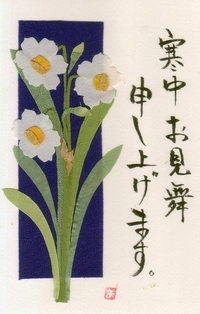 寒中お見舞
申し上げます。